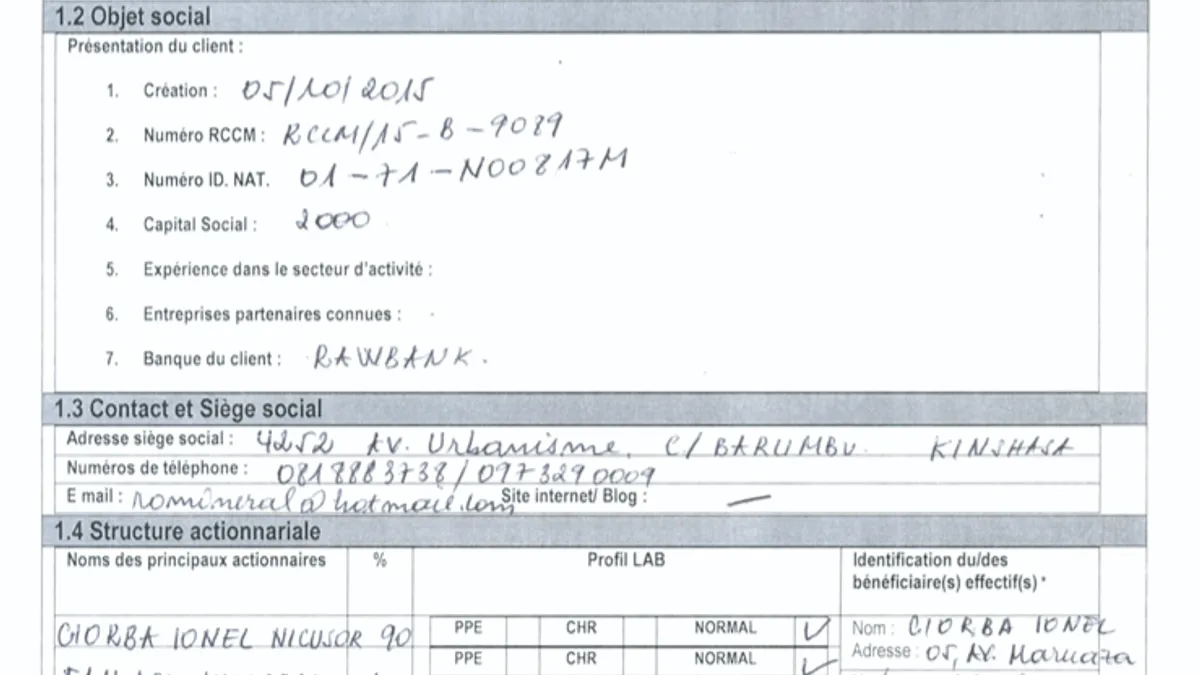 1.2 Objet social
Présentation du client :
1. Création : 05/10/2015
2. Numéro RCCM : RCCM/15-B-9089
3. Numéro ID. NAT. 01-71-N00817M
4. Capital Social : 2000
5. Expérience dans le secteur d'activité :
6. Entreprises partenaires connues :
7. Banque du client : RAWBANK.
1.3 Contact et Siège social
Adresse siège social : 4252 AV. Urbanisme, C/BARUMBU. KINSHASA
Numéros de téléphone : 0818883738/0973290009
E mail : romineral@hotmail.com Site internet/ Blog : —
1.4 Structure actionnariale
Noms des principaux actionnaires % Profil LAB Identification du/des
bénéficiaire(s) effectif(s) *
CIORBA IONEL NICUSOR 90 PPE CHR NORMAL ✓ Nom : CIORBA IONEL
PPE CHR NORMAL ✓ Adresse : 05, AV.